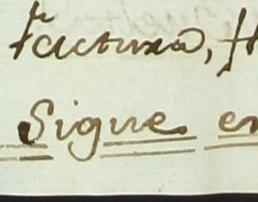 factura,
Sigue en